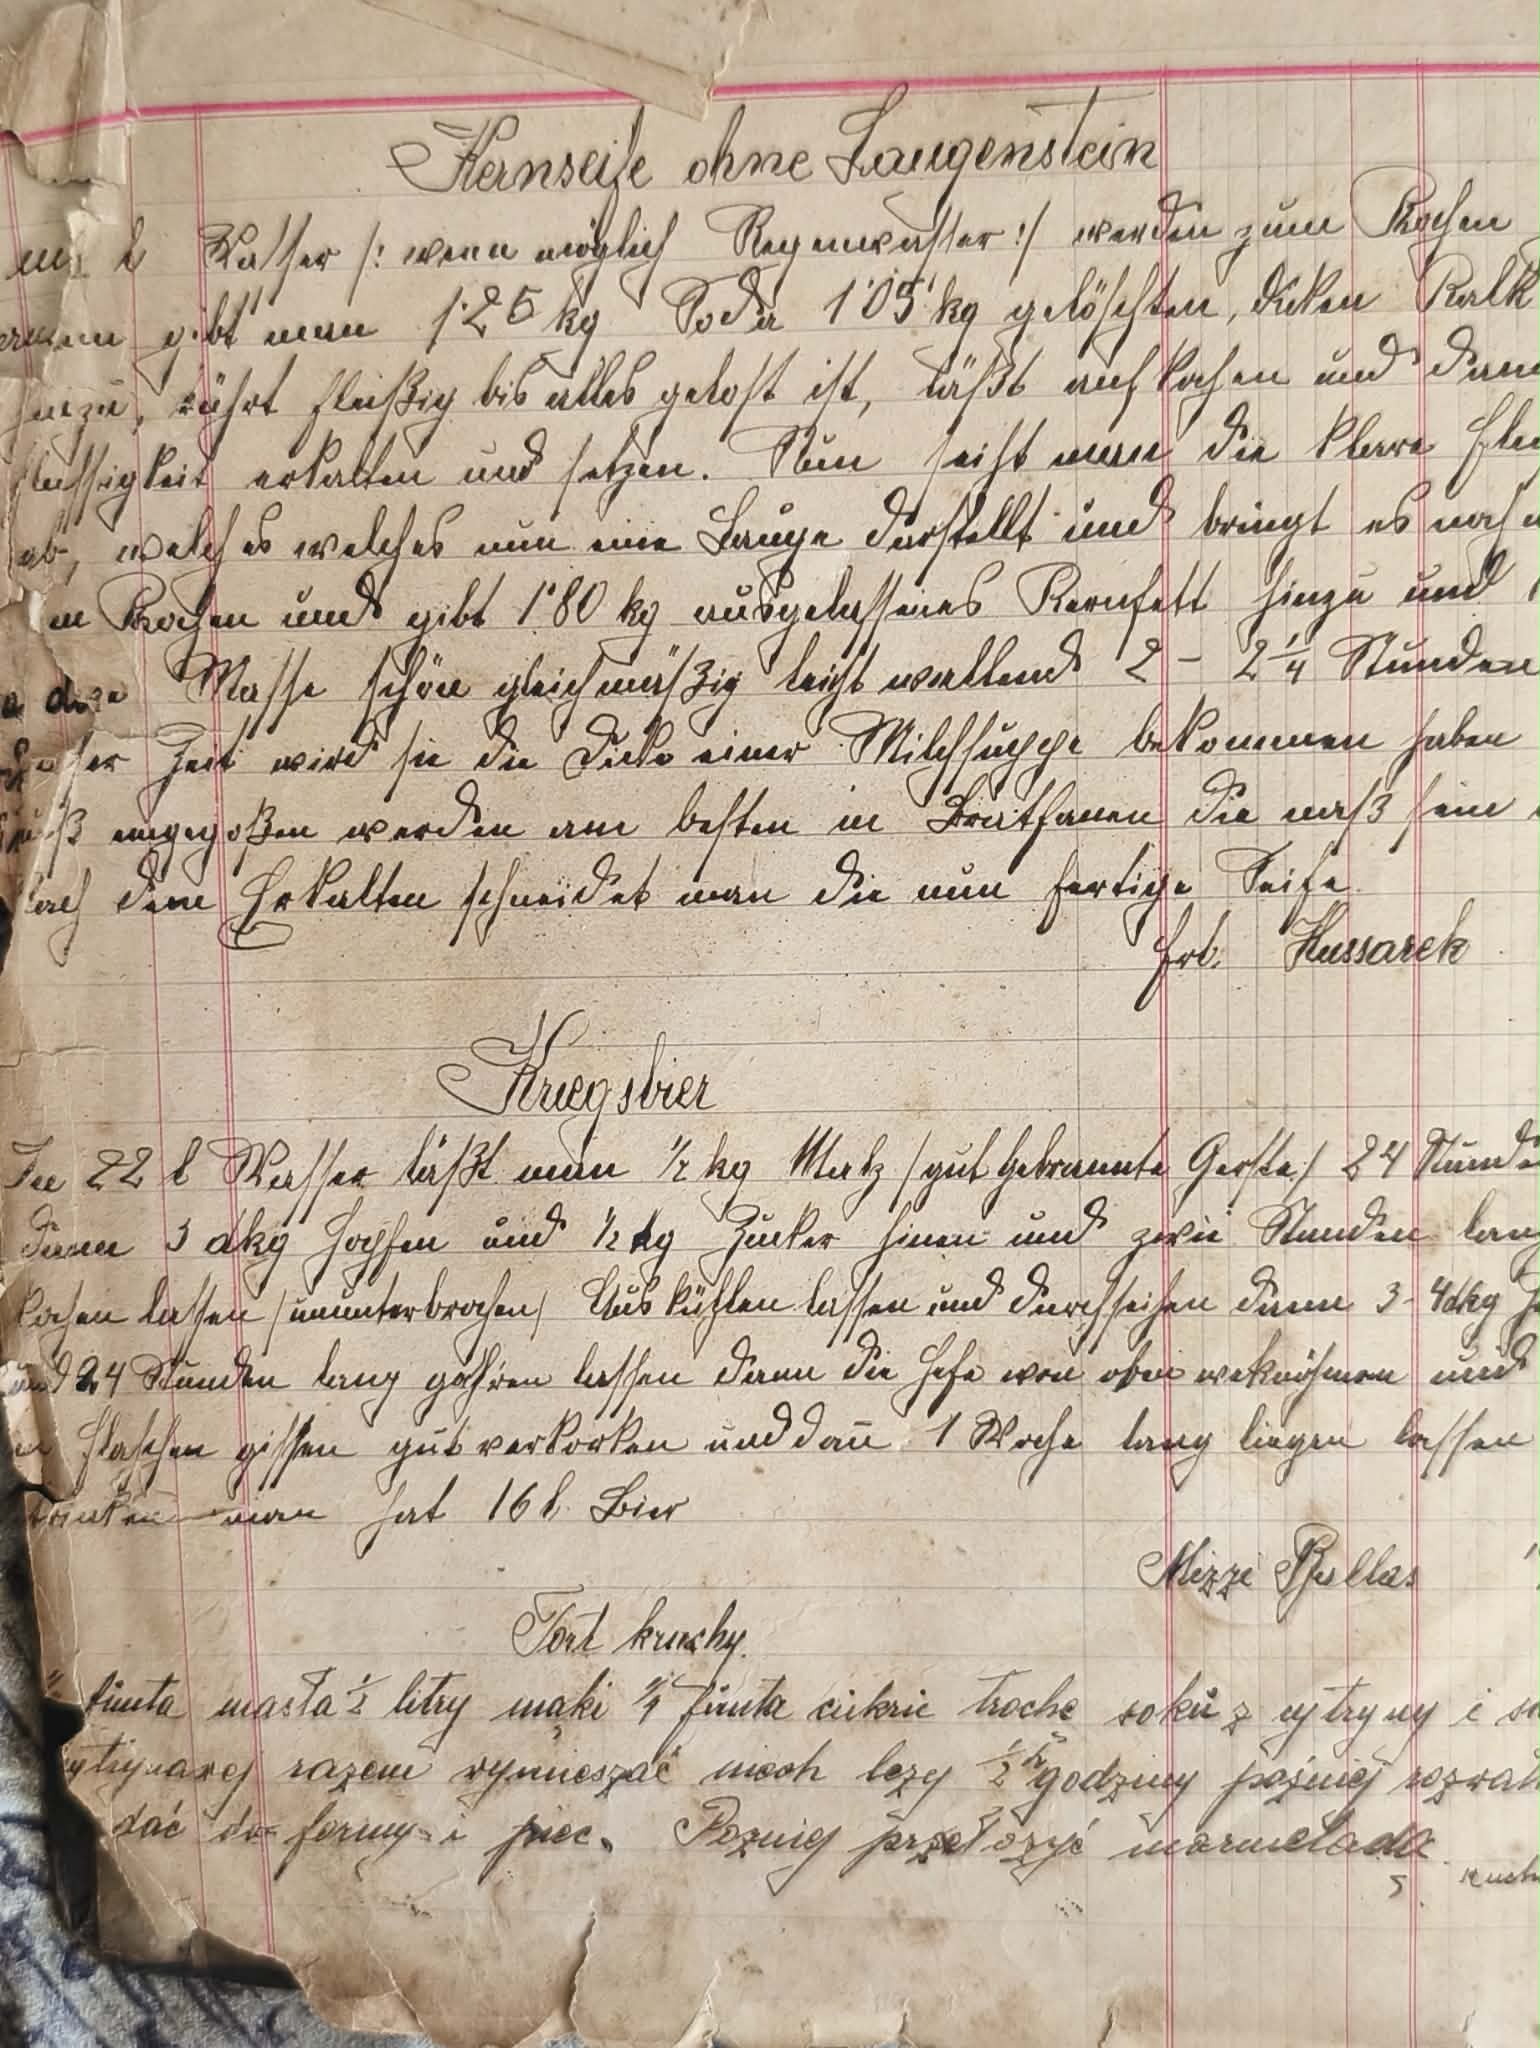 Kernseife ohne Laugenstein
l Wasser /: wenn möglich Regenwasser :/ werden zum Kochen
gibt man 1·25 kg Soda 1·05 kg gelöschten, dicken Kalk
hinzu, rührt fleißig bis alles gelost ist, läßt aufkochen und dann
flussigkeit erkalten und setzen. Nun seiht man die klare Flü
ab, welches welches nun eine Lauge darstellt und bringt es noch
Kochen und gibt 1·80 kg ausgelassenes Kernfett hinzu und
Masse schön gleichmäßig leicht wallend 2 – 2 1/4 Stunden
Zeit wird sie die Dicke einer Milchsuppe bekommen haben
muß eingegoßen werden am besten in Bratfanen die naß sein
Nach dem Erkalten schneidet man die nun fertige Seife.
Frl. Hussarek
Kriegsbier
In 22 l Wasser läßt man 1/2 kg Malz /gut gebrannte Gerste/ 24 Stunde
dann 3 dkg Hopfen und 1/2 kg Zucker hinein und zwei Stunden lang
kochen lassen /ununterbrochen/ Auskühlen lassen und durchseihen dann 3-4 dkg
und 24 Stunden lang gähren lassen dann die Hefe von oben weknöhmen und
in Flaschen gissen gut verkorken und dann 1 Woche lang liegen lassen
trinken man hat 16 l. Bier
Mizzi Pallas
Tort kruchy.
funta masła 1/2 litry mąki 1/4 funta cukru troche soku z cytryny i
cytrynowej razem wymieszać niech lezy 1/2 godziny pozniej
dać do formy i piec. Pozniej przełozyć marmeladą